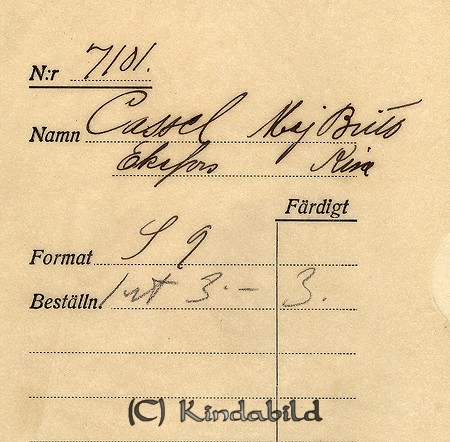 N:r 7101.
Namn Cassel Maj Britt
Ekefors Kisa
Färdigt
Format S 9
Beställn. 3.- 3.
(C) Kindabild